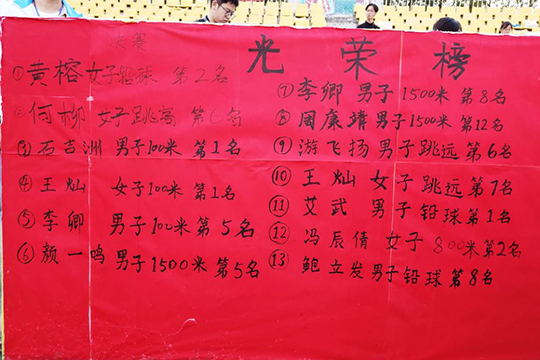 光荣榜
大赛
①黄榕女子铅球 第2名
②何柳 女子跳高 第6名
③石吉洲 男子100米 第1名
④王灿 女子100米 第1名
⑤李卿 男子100米 第5名
⑥颜一鸣 男子1500米 第5名
⑦李卿 男子1500米 第8名
⑧周康靖男子1500米 第12名
⑨游飞扬 男子跳远 第6名
⑩王灿 女子跳远 第7名
⑪艾武 男子铅球第1名
⑫冯辰倩 女子800米第2名
⑬鲍立发男子铅球 第8名